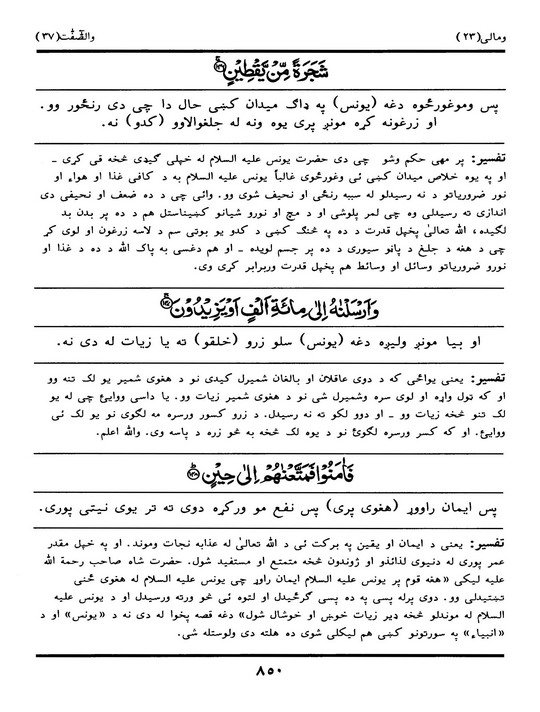 ومالی(۲۳) والصّٰفّٰت(۳۷)
شَجَرَةً مِّنْ يَّقْطِيْنٍ ﴿۱۴۶﴾
پس وموغورځوه دغه (یونس) په ډاګ میدان کښې حال دا چې دی رنځور وو.
او زرغونه کړه مونږ پرې یوه ونه له جلغوالاوو (کدو) نه.
تفسیر: پر مهی حکم وشو چې دی حضرت یونس علیه السلام له خپلې ګیډې څخه قی کړی ـ
او په یوه خلاص میدان کښې ئې وغورځوي غالباً یونس علیه السلام به د کافي غذا او هواء او
نور ضروریاتو د نه رسیدلو له سببه رنځي او نحیف شوی وو. وائي چې د ده ضعف او نحیفي دې
اندازې ته رسیدلې وه چې لمر پلوشې او د مچ او نورو شیانو کښیناستل هم د ده پر بدن بد
لګیده، الله تعالیٰ پخپل قدرت د ده په څنګ کښې د کدو یو بوټی سم د لاسه زرغون او لوی کړ
چې د هغه د جلغ د پاڼو سیوری د ده پر جسم لویده ـ او هم دغسې به پاک الله د ده د غذا او
نورو ضروریاتو وسائل او وسائط هم پخپل قدرت وربرابر کړي وي.
وَاَرْسَلْنٰهُ اِلٰى مِائَةِ اَلْفٍ اَوْ يَزِيْدُوْنَ ﴿۱۴۷﴾
او بیا مونږ ولیږه دغه (یونس) سلو زرو (خلقو) ته یا زیات له دې نه.
تفسیر: یعنې یواځې که د دوی عاقلان او بالغان شمیرل کیدی نو د هغوی شمیر یو لک تنه وو
او که ټول واړه او لوی سره وشمیرل شي نو د هغوی شمیر زیات وو. یا داسې ووایئ چې له یو
لک تنو څخه زیات وو ـ او دوو لکو ته نه رسیدل. د زرو کسور ورسره مه لګوئ نو یو لک ئې
ووایئ. او که کسر ورسره لګوئ نو د یوه لک څخه به څو زره د پاسه وي. والله اعلم.
فَاٰمَنُوْا فَمَتَّعْنٰهُمْ اِلٰى حِيْنٍ ﴿۱۴۸﴾
پس ایمان راووړ (هغوی پرې) پس نفع مو ورکړه دوی ته تر یوې نیټې پورې.
تفسیر: یعنې د ایمان او یقین په برکت ئې د الله تعالیٰ له عذابه نجات وموند. او په خپل مقدر
عمر پورې له دنیوي لذائذو او ژوندون څخه متمتع او مستفید شول. حضرت شاه صاحب رحمة الله
علیه لیکي «هغه قوم پر یونس علیه السلام ایمان راوړ چې یونس علیه السلام له هغوی ځنې
تښتیدلی وو. دوی پرله پسې په ده پسې ګرځیدل او لتوه ئې څو ورته ورسیدل او د یونس علیه
السلام له موندلو څخه ډیر زیات خوښ او خوشال شول» دغه قصه پخوا له دې نه د «یونس» او د
«انبیاء» په سورتونو کښې هم لیکلې شوې ده هلته دې ولوستله شي.
۸۵۰